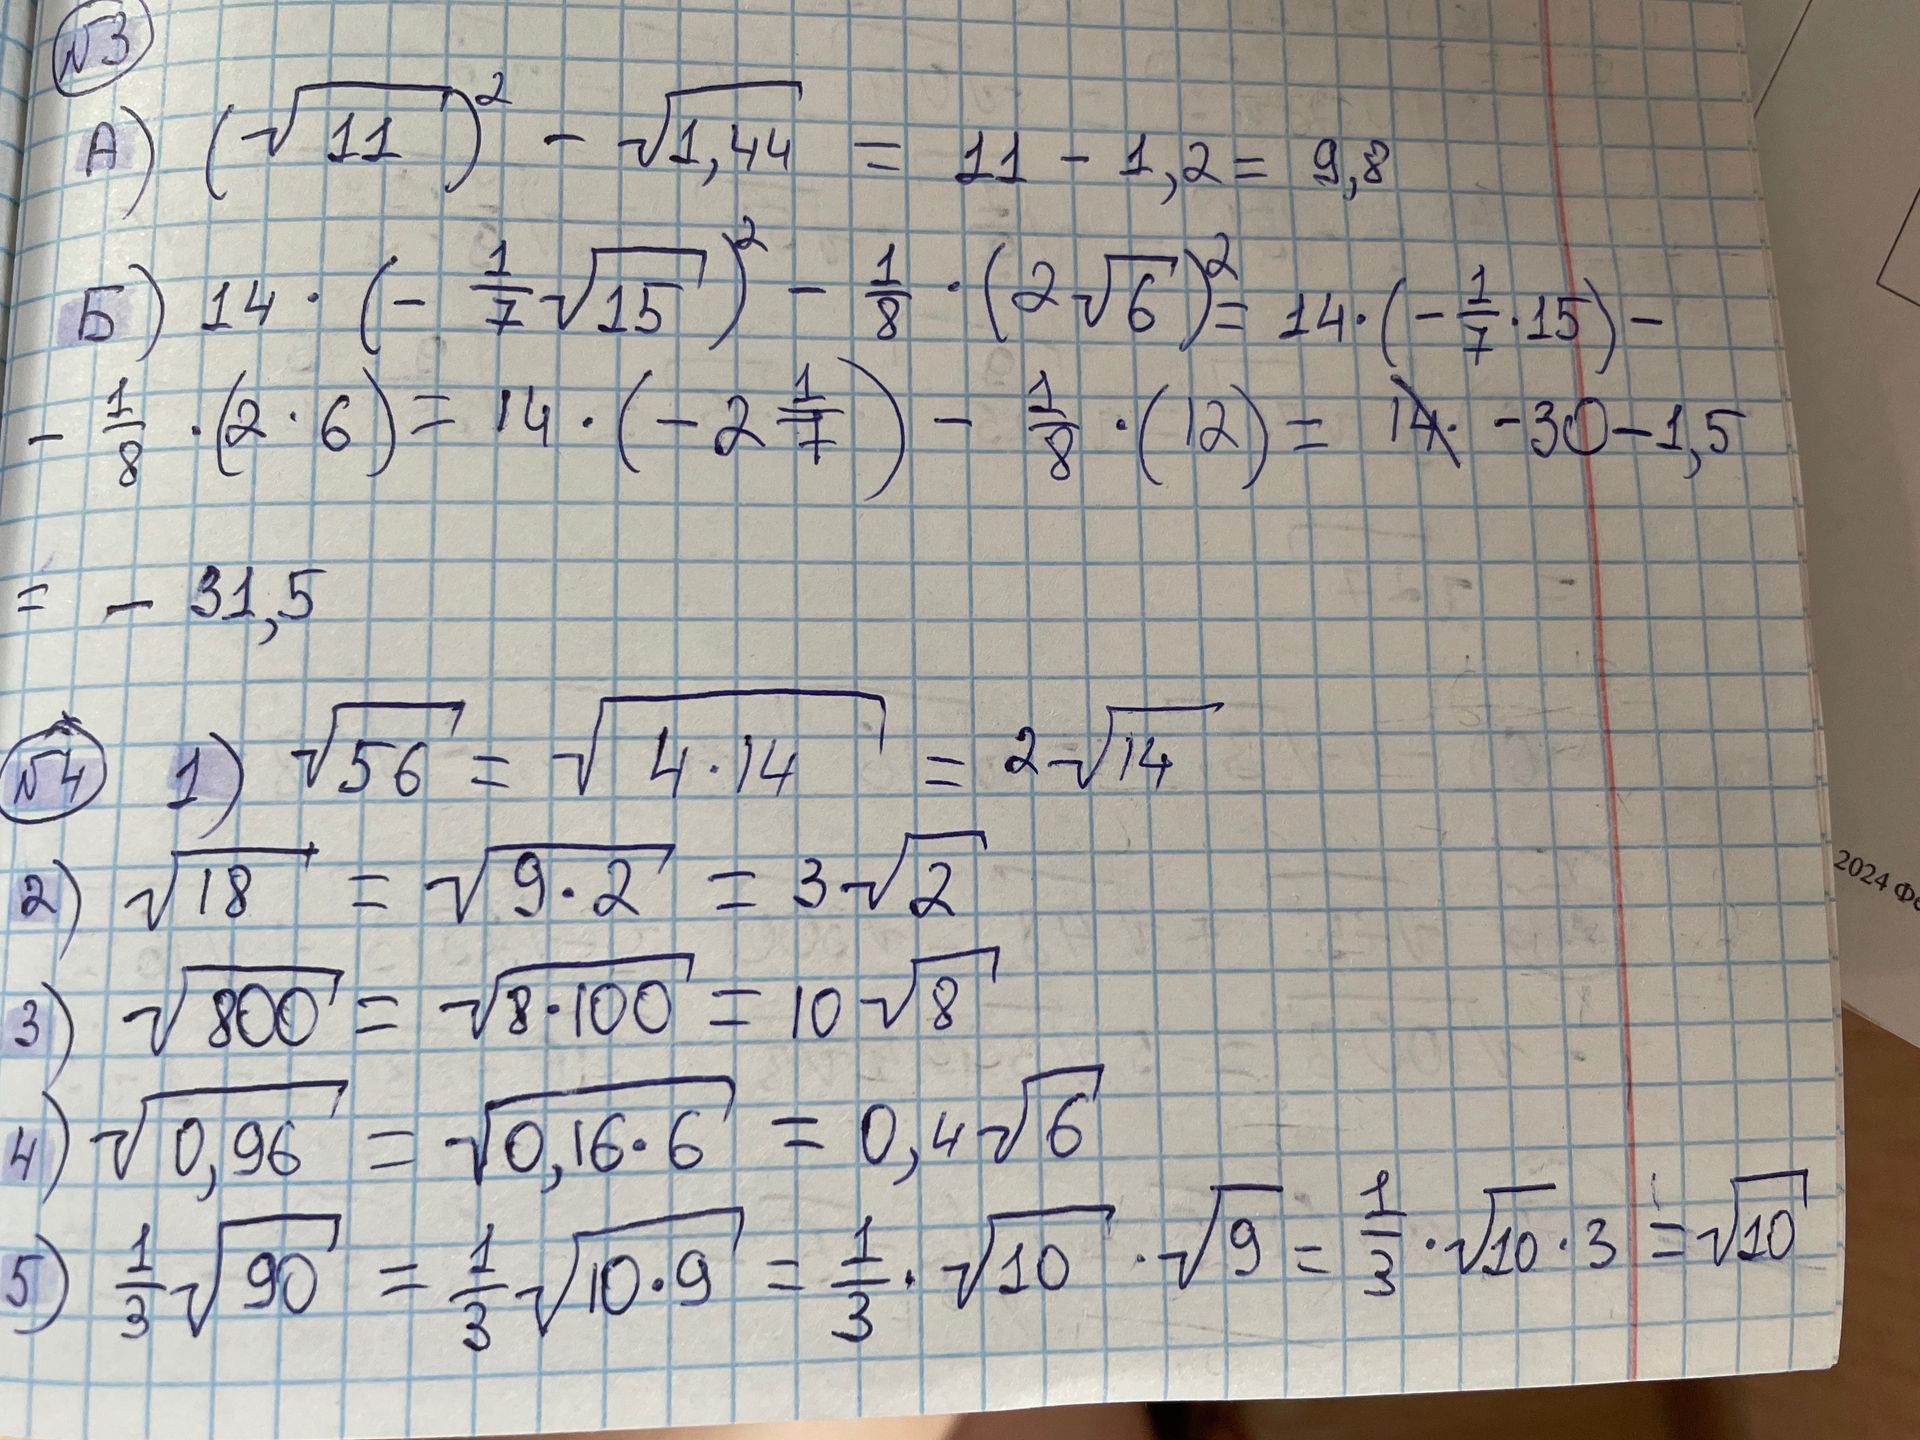 №3
А) (√11)² - √1,44 = 11 - 1,2 = 9,8
Б) 14 · (- 1/7 √15)² - 1/8 · (2√6)² = 14 · (- 1/7 · 15) -
- 1/8 · (2 · 6) = 14 · (- 2 1/7) - 1/8 · (12) = 14 · - 30 - 1,5
= - 31,5
№4 1) √56 = √4 · 14 = 2√14
2) √18 = √9 · 2 = 3√2
3) √800 = √8 · 100 = 10√8
4) √0,96 = √0,16 · 6 = 0,4√6
5) 1/3 √90 = 1/3 √10 · 9 = 1/3 · √10 · √9 = 1/3 · √10 · 3 = √10
2024